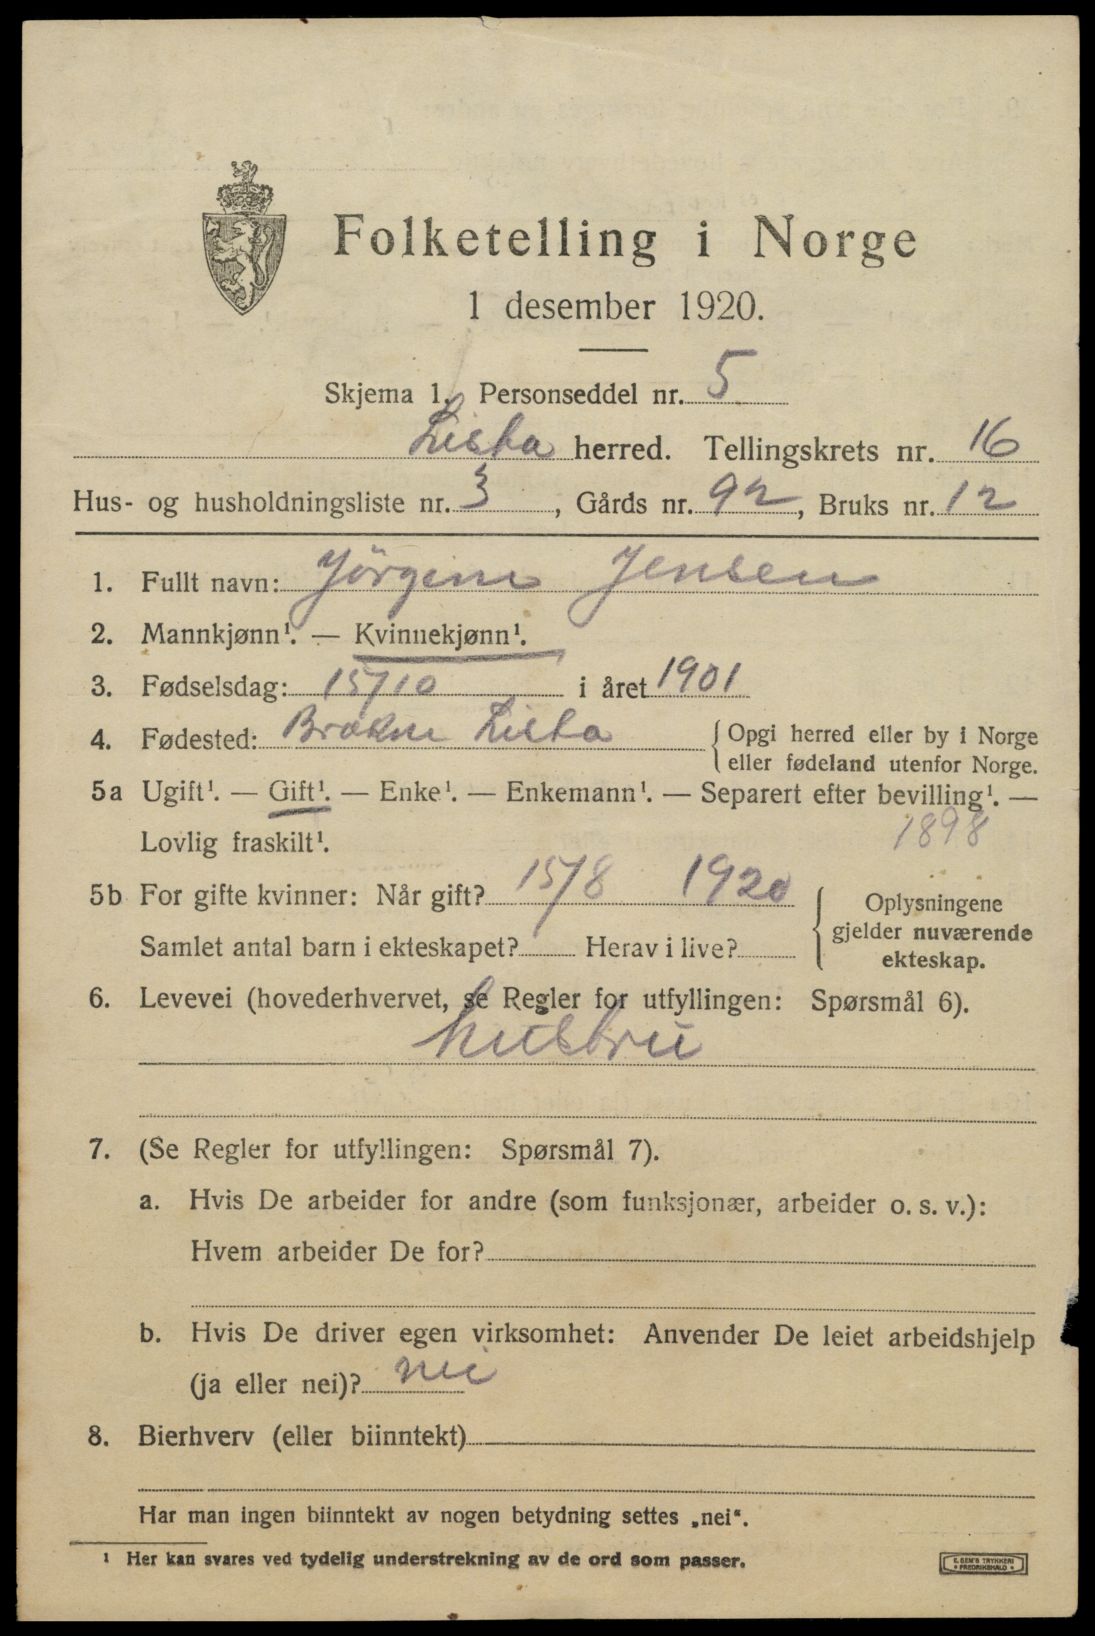 Folketelling i Norge
1 desember 1920.
Skjema 1. Personseddel nr. 5
Lista herred. Tellingskrets nr. 16
Hus- og husholdningsliste nr. 3, Gårds nr. 92, Bruks nr. 12
1. Fullt navn: Jørgine Jensen
2. Mannkjønn¹. — Kvinnekjønn¹.
3. Fødselsdag: 15/10 i året 1901
4. Fødested: Brekne Lista {Opgi herred eller by i Norge
eller fødeland utenfor Norge.
5a Ugift¹. — Gift¹. — Enke¹. — Enkemann¹. — Separert efter bevilling¹. —
Lovlig fraskilt¹. 1898
5b For gifte kvinner: Når gift? 15/8 1920
Samlet antal barn i ekteskapet? Herav i live?
{Oplysningene
gjelder nuværende
ekteskap.
6. Levevei (hovederhvervet, se Regler for utfyllingen: Spørsmål 6).
hustru
7. (Se Regler for utfyllingen: Spørsmål 7).
a. Hvis De arbeider for andre (som funksjonær, arbeider o. s. v.):
Hvem arbeider De for?
b. Hvis De driver egen virksomhet: Anvender De leiet arbeidshjelp
(ja eller nei)? nei
8. Bierhverv (eller biinntekt)
Har man ingen biinntekt av nogen betydning settes „nei“.
¹ Her kan svares ved tydelig understrekning av de ord som passer.
E. SEM'S TRYKKERI
FREDRIKSHALD